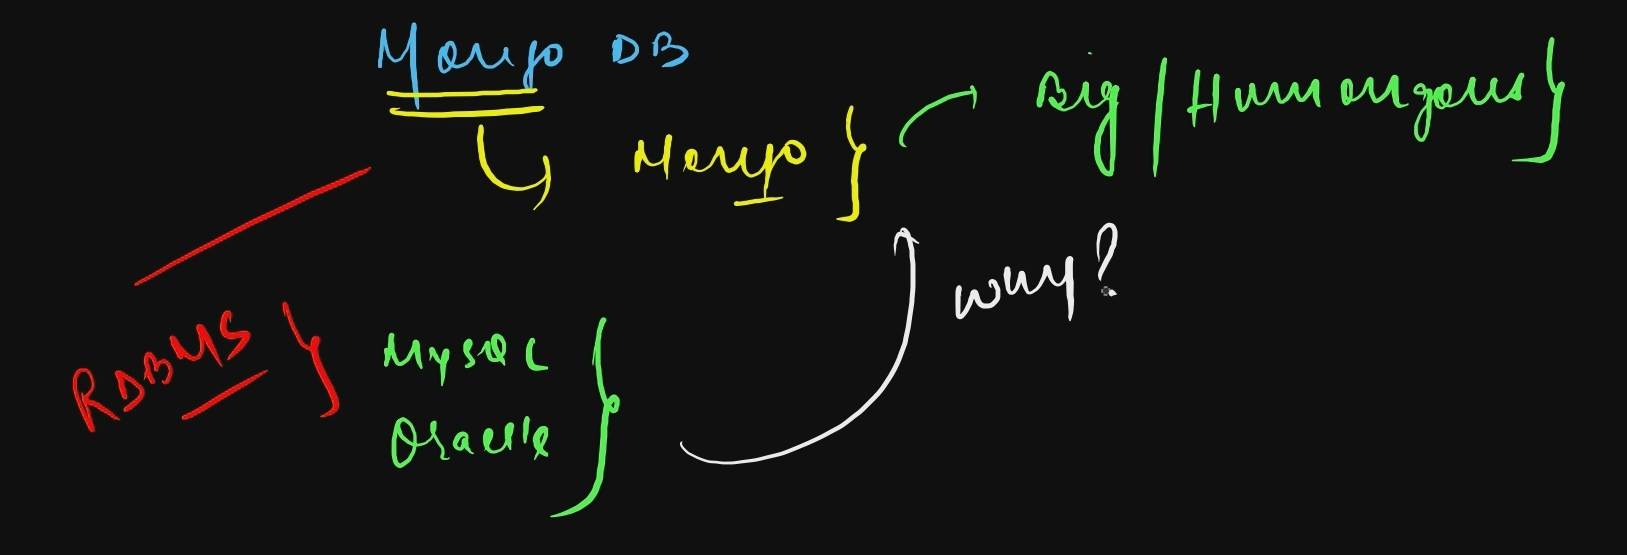 Mongo DB
Mongo }
Big / Humongous }
why?
RDBMS }
MySQL
Oracle